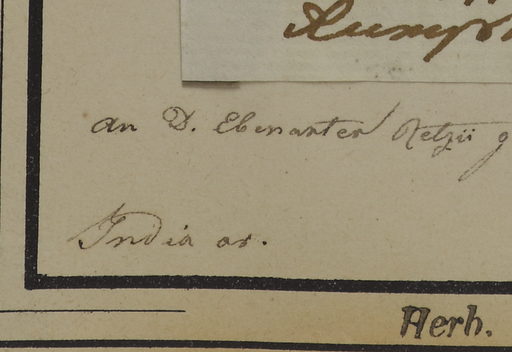 an D. Ebenaster Retzii
India or.
Herb.